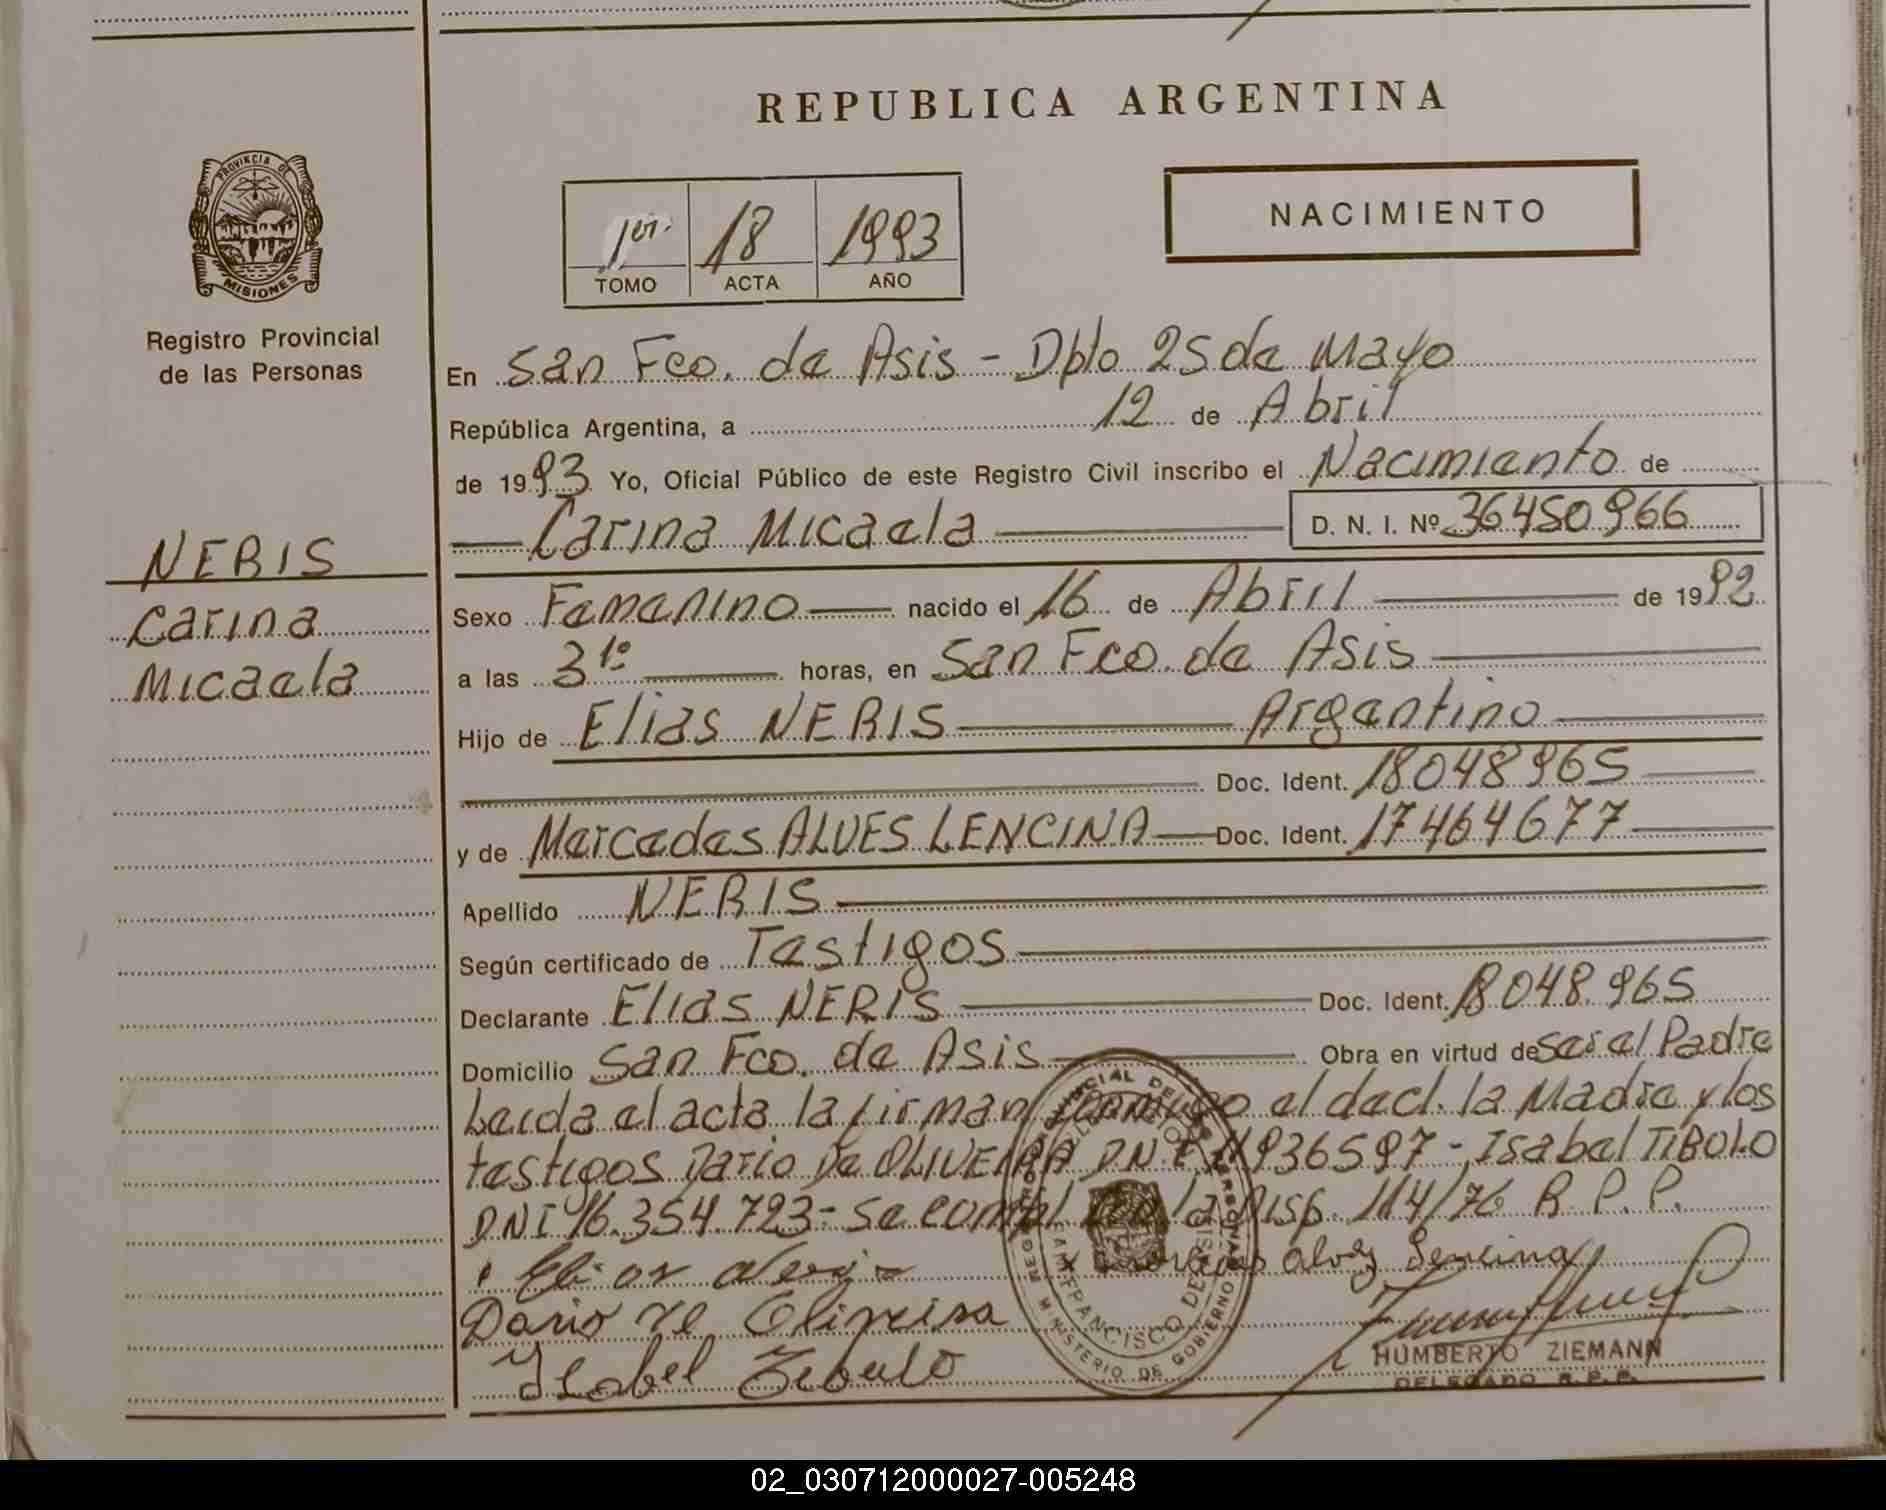 REPUBLICA ARGENTINA
PROVINCIA DE
MISIONES
Registro Provincial
de las Personas
1er. 18 1993
TOMO ACTA AÑO
NACIMIENTO
En San Fco. de Asis - Dpto 25 de Mayo
República Argentina, a 12 de Abril
de 1993 Yo, Oficial Público de este Registro Civil inscribo el Nacimiento de
Carina Micaela D. N. I. Nº 36450966
NERIS
Carina
Micaela
Sexo Femenino nacido el 16 de Abril de 1992
a las 3 10 horas, en San Fco. de Asis
Hijo de Elias NERIS Argentino
Doc. Ident. 18048965
y de Mercedes ALVES LENCINA Doc. Ident. 17464677
Apellido NERIS
Según certificado de Testigos
Declarante Elias NERIS Doc. Ident. 18048.965
Domicilio San Fco. de Asis Obra en virtud de Ser el Padre
Leida el acta la firman conmigo el decl. la Madre y los
testigos Dario De OLIVEIRA DNI 11936597 - Isabel TIBOLO
DNI 16.354.723 - Se la Disp. 114/76 R.P.P.
Elias Neris
Alvez Lencina
Dario de Oliveira
Isabel
MINISTERIO DE GOBIERNO
FRANCISCO DE ASIS
HUMBERTO ZIEMANN
DELEGADO R.P.P.
02_030712000027-005248